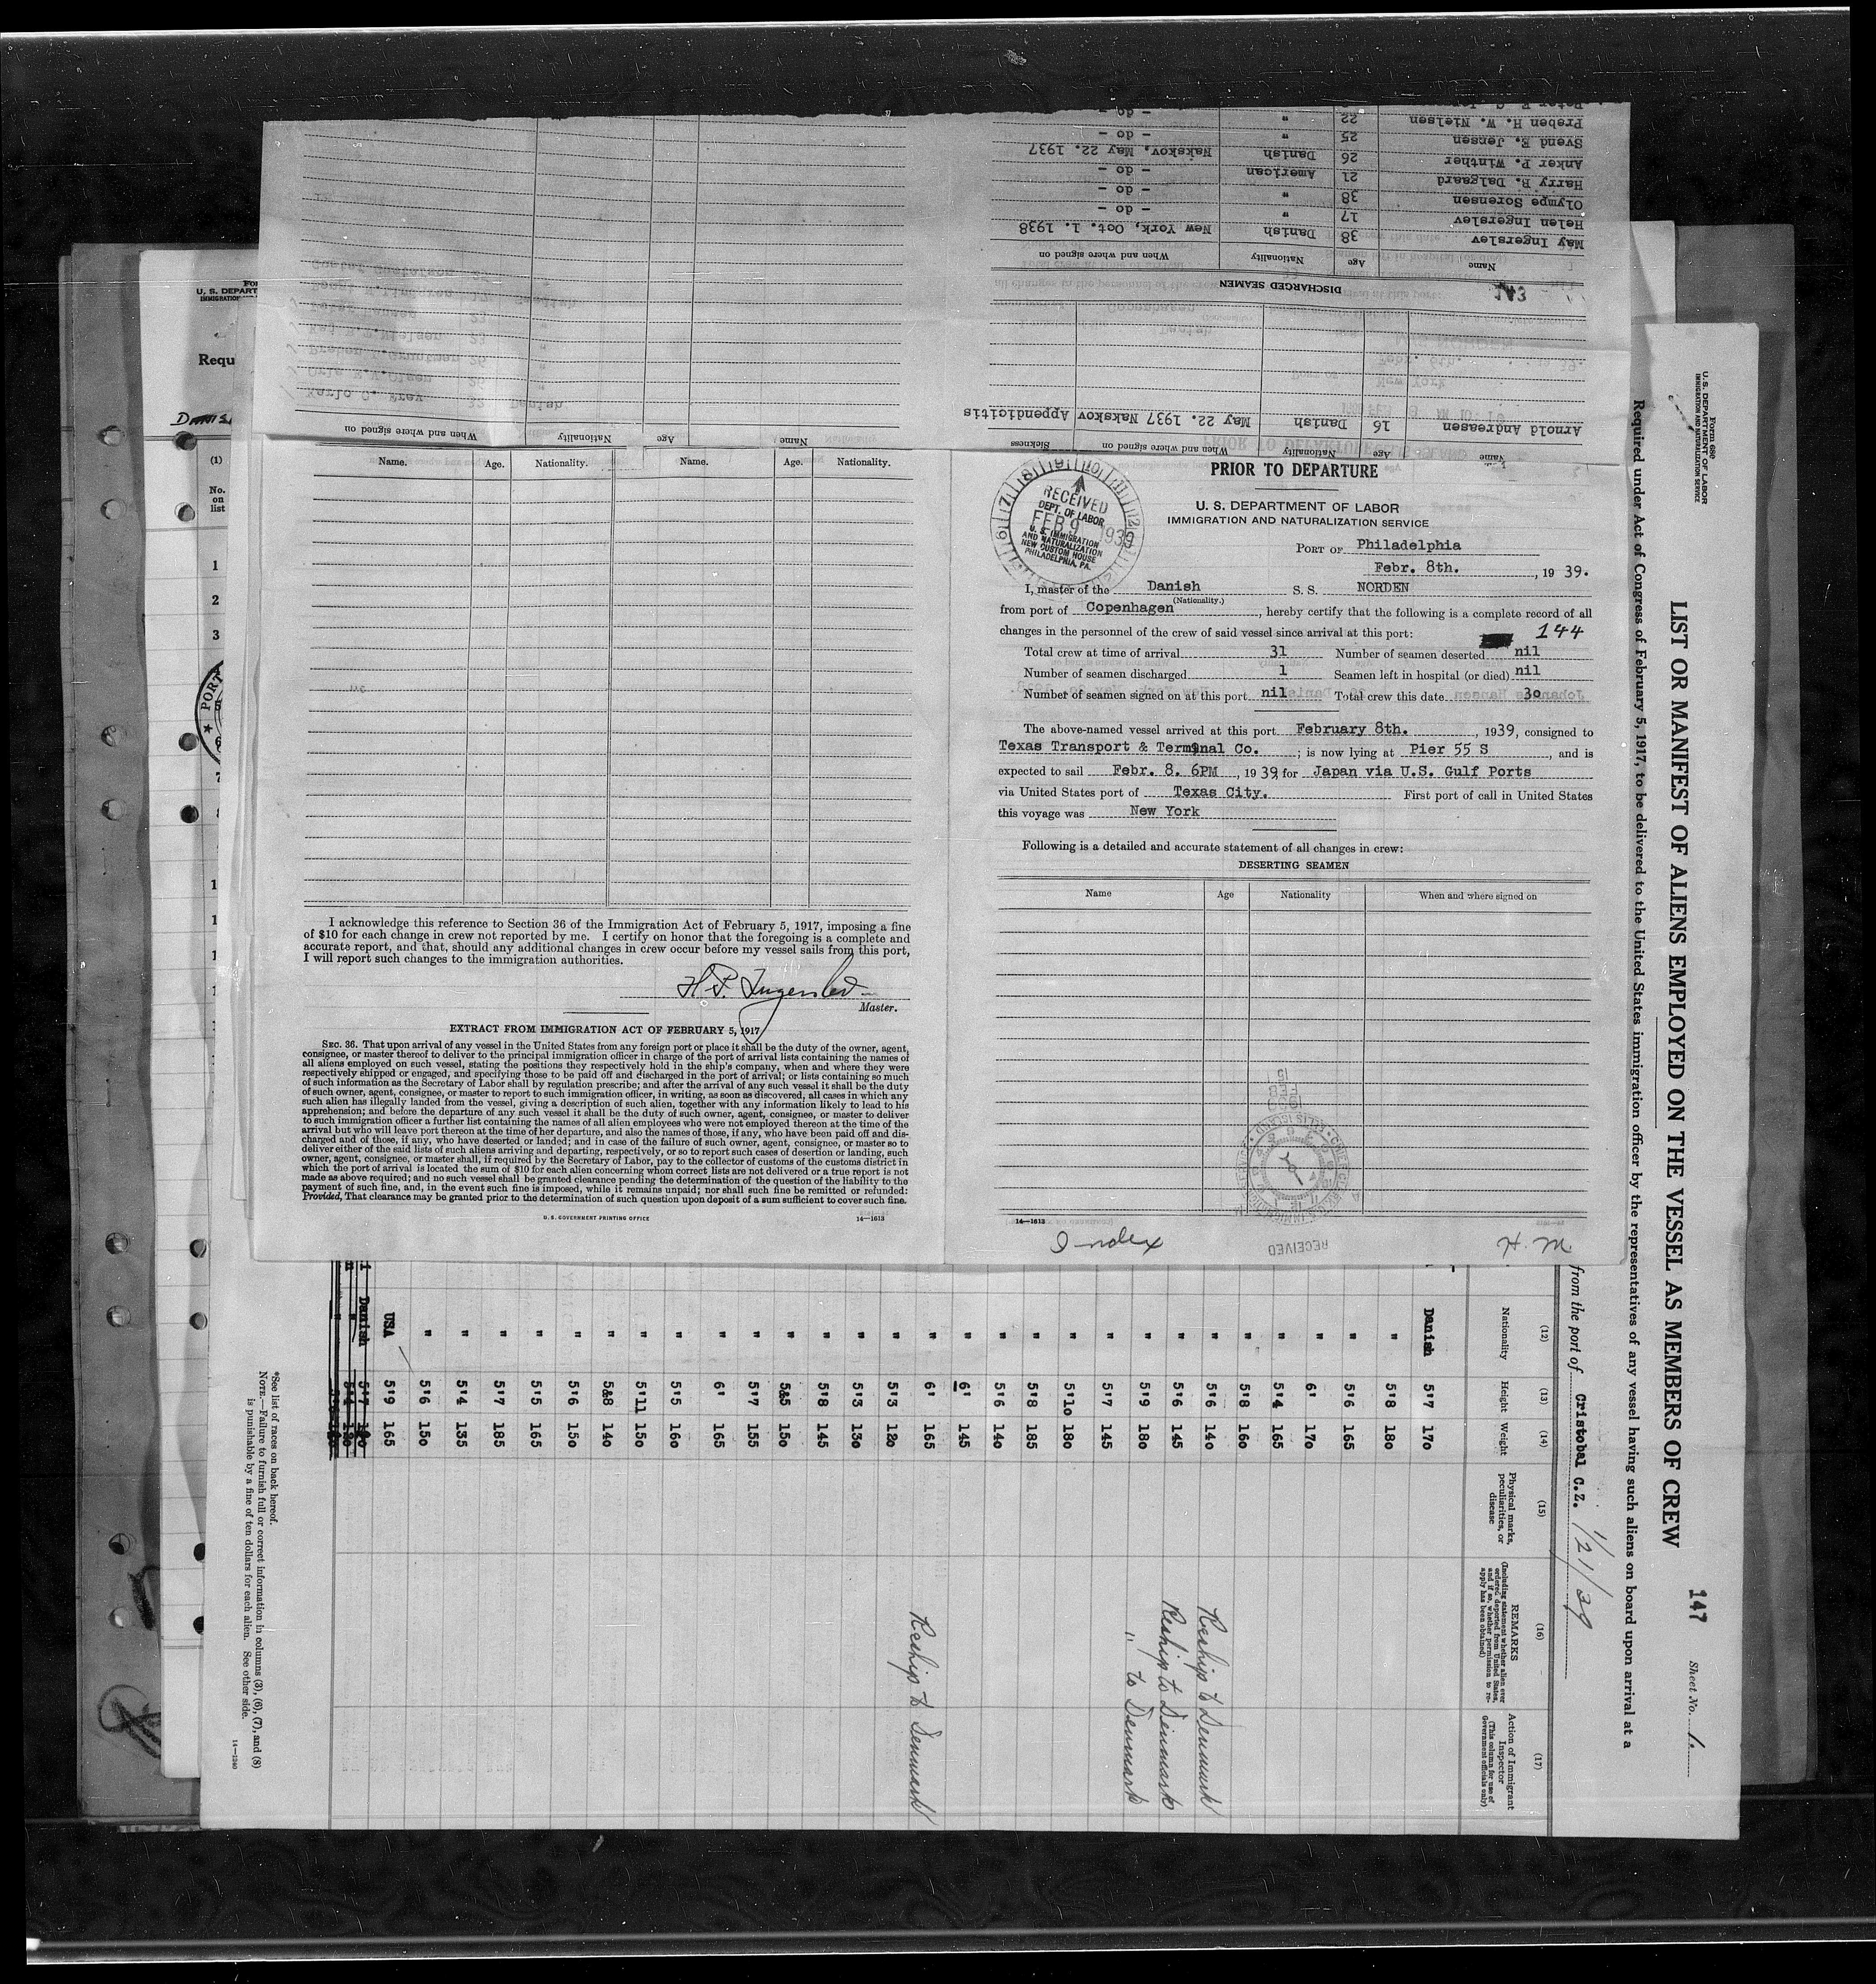 Name. Age. Nationality. Name. Age. Nationality.
I acknowledge this reference to Section 36 of the Immigration Act of February 5, 1917, imposing a fine
of $10 for each change in crew not reported by me. I certify on honor that the foregoing is a complete and
accurate report, and that, should any additional changes in crew occur before my vessel sails from this port,
I will report such changes to the immigration authorities.
Master.
EXTRACT FROM IMMIGRATION ACT OF FEBRUARY 5, 1917
SEC. 36. That upon arrival of any vessel in the United States from any foreign port or place it shall be the duty of the owner, agent,
consignee, or master thereof to deliver to the principal immigration officer in charge of the port of arrival lists containing the names of
all aliens employed on such vessel, stating the positions they respectively hold in the ship's company, when and where they were
respectively shipped or engaged, and specifying those to be paid off and discharged in the port of arrival; or lists containing so much
of such information as the Secretary of Labor shall by regulation prescribe; and after the arrival of any such vessel it shall be the duty
of such owner, agent, consignee, or master to report to such immigration officer, in writing, as soon as discovered, all cases in which any
such alien has illegally landed from the vessel, giving a description of such alien, together with any information likely to lead to his
apprehension; and before the departure of any such vessel it shall be the duty of such owner, agent, consignee, or master to deliver
to such immigration officer a further list containing the names of all alien employees who were not employed thereon at the time of the
arrival but who will leave port thereon at the time of her departure, and also the names of those, if any, who have been paid off and dis-
charged and of those, if any, who have deserted or landed; and in case of the failure of such owner, agent, consignee, or master so to
deliver either of the said lists of such aliens arriving and departing, respectively, or so to report such cases of desertion or landing, such
owner, agent, consignee, or master shall, if required by the Secretary of Labor, pay to the collector of customs of the customs district in
which the port of arrival is located the sum of $10 for each alien concerning whom correct lists are not delivered or a true report is not
made as above required; and no such vessel shall be granted clearance pending the determination of the question of the liability to the
payment of such fine, and, in the event such fine is imposed, while it remains unpaid; nor shall such fine be remitted or refunded:
Provided, That clearance may be granted prior to the determination of such question upon deposit of a sum sufficient to cover such fine.
U. S. GOVERNMENT PRINTING OFFICE 14—1613
PRIOR TO DEPARTURE
U. S. DEPARTMENT OF LABOR
IMMIGRATION AND NATURALIZATION SERVICE
RECEIVED
DEPT. OF LABOR
FEB 9 1939
U. S. IMMIGRATION
AND NATURALIZATION
NEW CUSTOM HOUSE
PHILADELPHIA, PA.
PORT OF Philadelphia
Febr. 8th. , 19 39.
I, master of the Danish S. S. NORDEN
(Nationality.)
from port of Copenhagen , hereby certify that the following is a complete record of all
changes in the personnel of the crew of said vessel since arrival at this port: 144
Total crew at time of arrival 31 Number of seamen deserted nil
Number of seamen discharged 1 Seamen left in hospital (or died) nil
Number of seamen signed on at this port nil Total crew this date 3o
The above-named vessel arrived at this port February 8th. , 1939, consigned to
Texas Transport & Terminal Co. ; is now lying at Pier 55 S , and is
expected to sail Febr. 8. 6PM , 19 39 for Japan via U.S. Gulf Ports
via United States port of Texas City. First port of call in United States
this voyage was New York
Following is a detailed and accurate statement of all changes in crew:
DESERTING SEAMEN
Name Age Nationality When and where signed on
14—1613
Index RECEIVED H. M.
Name Age Nationality When and where signed on Sickness
Arnold Andreasen 16 Danish May 22. 1937 Nakskov Appendicitis
143
DISCHARGED SEAMEN
Name Age Nationality When and where signed on
May Ingerslev 38 Danish New York, Oct. 1. 1938
Helen Ingerslev 17 " - do -
Olympe Sorensen 38 " - do -
Harry B. Dalgaard 21 American - do -
Anker P. Winther 26 Danish Nakskov. May 22. 1937
Svend E. Jensen 25 " - do -
Preben H. W. Nielsen 22 " - do -
Name Age Nationality When and where signed on
Requ
(1)
No.
on
list
1
2
3
Form 689
U. S. DEPARTMENT OF LABOR
IMMIGRATION AND NATURALIZATION SERVICE
LIST OR MANIFEST OF ALIENS EMPLOYED ON THE VESSEL AS MEMBERS OF CREW
147
Sheet No. 1.
Required under Act of Congress of February 5, 1917, to be delivered to the United States immigration officer by the representatives of any vessel having such aliens on board upon arrival at a
from the port of Cristobal C.Z. 1/21/39
(12) (13) (14) (15) (16) (17)
Nationality Height Weight
Physical marks, peculiarities, or disease
REMARKS
(Including statement whether alien ever ordered deported from United States, and if so, whether permission to reapply has been obtained)
Action of Immigrant Inspector
(This column for use of Government officials only)
Danish 5'7 17o
" 5'8 18o
" 5'6 165
" 6' 17o
" 5'4 165
" 5'8 16o
" 5'6 14o Reship to Denmark
" 5'6 145 Reship to Denmark
" 5'9 18o " to Denmark
" 5'7 145
" 5'1o 18o
" 5'8 185
" 5'6 14o
" 6' 145
" 6' 165 Reship to Denmark
" 5'3 12o
" 5'3 13o
" 5'8 145
" 5&5 15o
" 5'7 155
" 6' 165
" 5'5 16o
" 5'11 15o
" 5&8 14o
" 5'6 15o
" 5'5 165
" 5'7 185
" 5'4 135
" 5'6 15o
USA 5'9 165
Danish 5'7
*See list of races on back hereof.
NOTE.—Failure to furnish full or correct information in columns (3), (6), (7), and (8)
is punishable by a fine of ten dollars for each alien. See other side.
14—1240